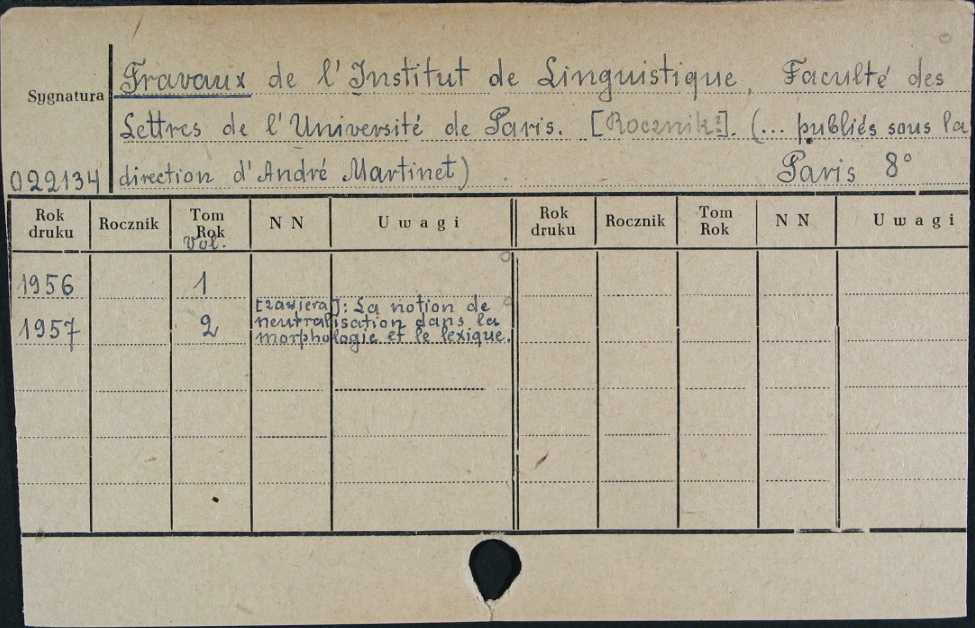 Travaux de l'Institut de Linguistique, Faculté des
Sygnatura
Lettres de l'Université de Paris. [Rocznik?]. (... publiés sous la
022134 direction d'André Martinet) . Paris 8°
Rok druku Rocznik Tom Rok Vol. N N Uwagi Rok druku Rocznik Tom Rok N N Uwagi
1956 1
[zawiera]: La notion de
1957 2 neutralisation dans la
morphologie et le lexique.